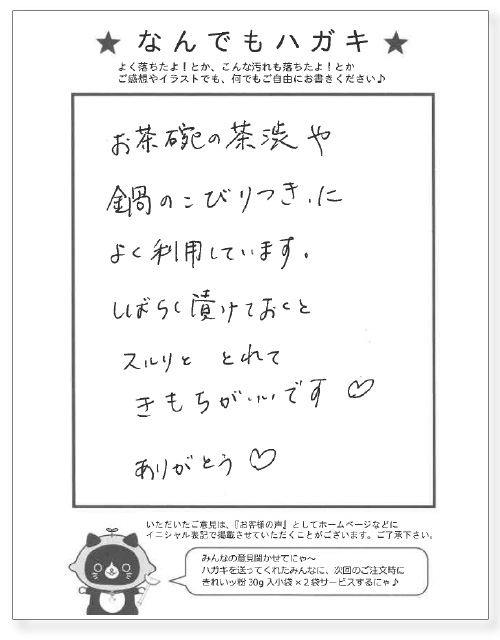 ★ なんでもハガキ ★
よく落ちたよ！とか、こんな汚れも落ちたよ！とか
ご感想やイラストでも、何でもご自由にお書きください♪
お茶碗の茶渋や
鍋のこびりつき、に
よく利用しています。
しばらく漬けておくと
スルリと とれて
きもちがいいです♡
ありがとう♡
いただいたご意見は、『お客様の声』としてホームページなどに
イニシャル表記で掲載させていただくことがございます。ご了承下さい。
みんなの意見聞かせてにゃ～
ハガキを送ってくれたみんなに、次回のご注文時に
きれいッ粉30g入小袋×2袋サービスするにゃ♪